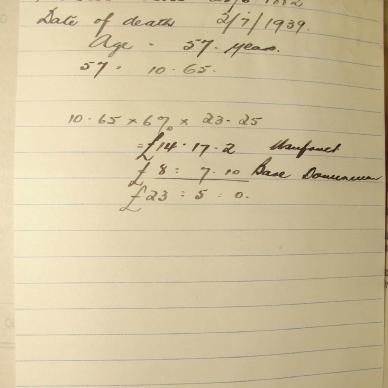 1882
Date of death 2/7/1939.
Age . 57. years.
57. 10.65.
10.65 x 6% x 23-25
= £14.17.2 Usufruct
£ 8 : 7.10 Bare Dominium
£23 : 5 : 0.